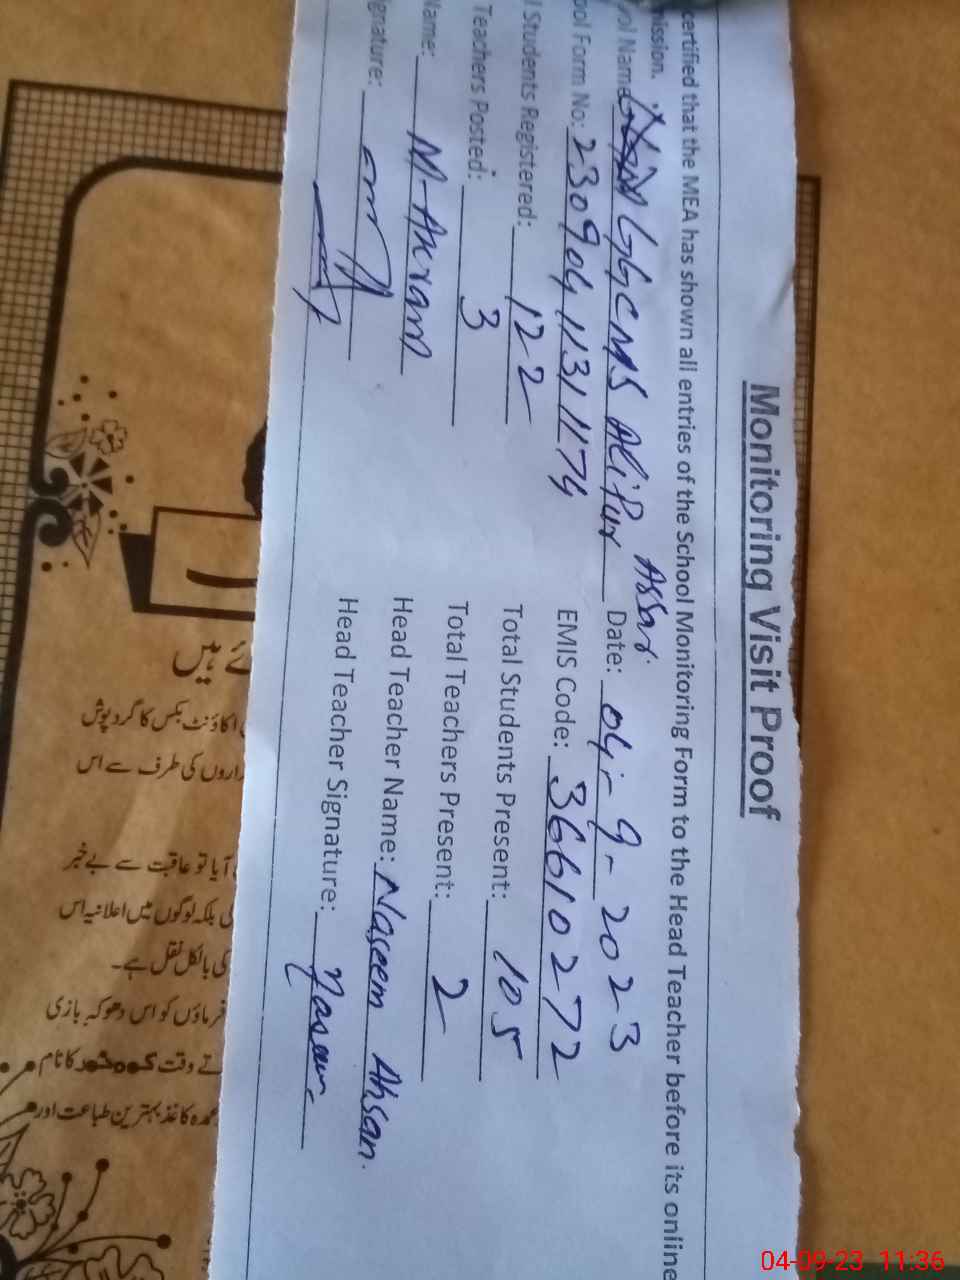 Monitoring Visit Proof
certified that the MEA has shown all entries of the School Monitoring Form to the Head Teacher before its online
mission.
ool Name GGCMS Alipur Assar. Date: 04-9-2023
ool Form No: 2309041131174 EMIS Code: 36610272
l Students Registered: 122 Total Students Present: 105
Teachers Posted: 3 Total Teachers Present: 2
Name: M-Akram Head Teacher Name: Naseem Ahsan.
gnature: Head Teacher Signature: Naseem
ئے ہیں
اکاؤنٹ بکس کا گردپوش
راروں کی طرف سے اس
آیا تو عاقبت سے بے خبر
کی بلکہ لوگوں میں اعلانیہ اس
کی بالکل نقل ہے۔
فرماؤں کو اس دھوکہ بازی
تے وقت کا نام
عمدہ کاغذ بہترین طباعت اور
04-09-23 11:36